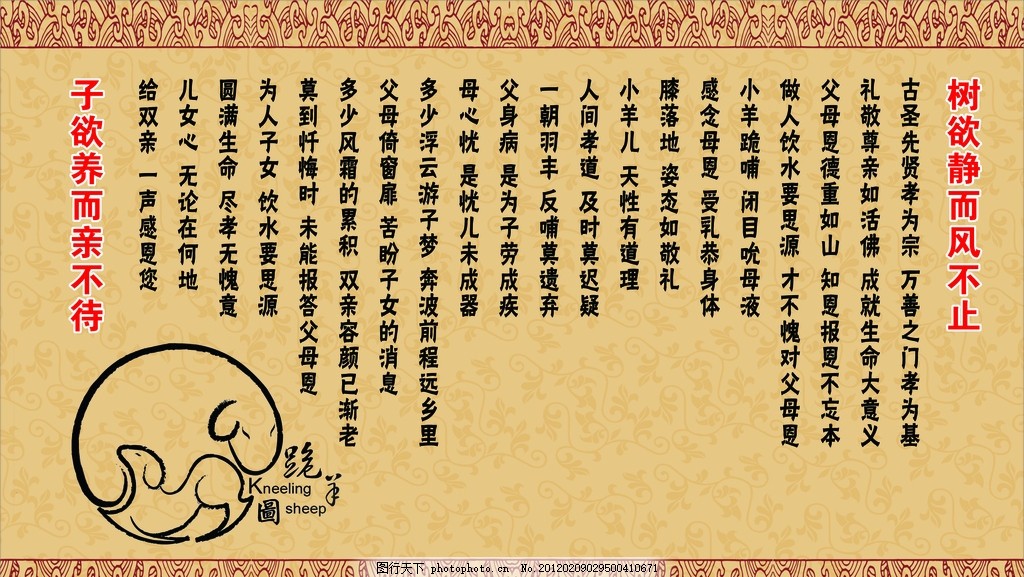 树欲静而风不止
古圣先贤孝为宗 万善之门孝为基
礼敬尊亲如活佛 成就生命大意义
父母恩德重如山 知恩报恩不忘本
做人饮水要思源 才不愧对父母恩
小羊跪哺 闭目吮母液
感念母恩 受乳恭身体
膝落地 姿态如敬礼
小羊儿 天性有道理
人间孝道 及时莫迟疑
一朝羽丰 反哺莫遗弃
父身病 是为子劳成疾
母心忧 是忧儿未成器
多少浮云游子梦 奔波前程远乡里
父母倚窗扉 苦盼子女的消息
多少风霜的累积 双亲容颜已渐老
莫到忏悔时 未能报答父母恩
为人子女 饮水要思源
圆满生命 尽孝无愧意
儿女心 无论在何地
给双亲 一声感恩您
子欲养而亲不待
跪羊圖
Kneeling
sheep
图行天下 photophoto.cn No.20120209029500410671